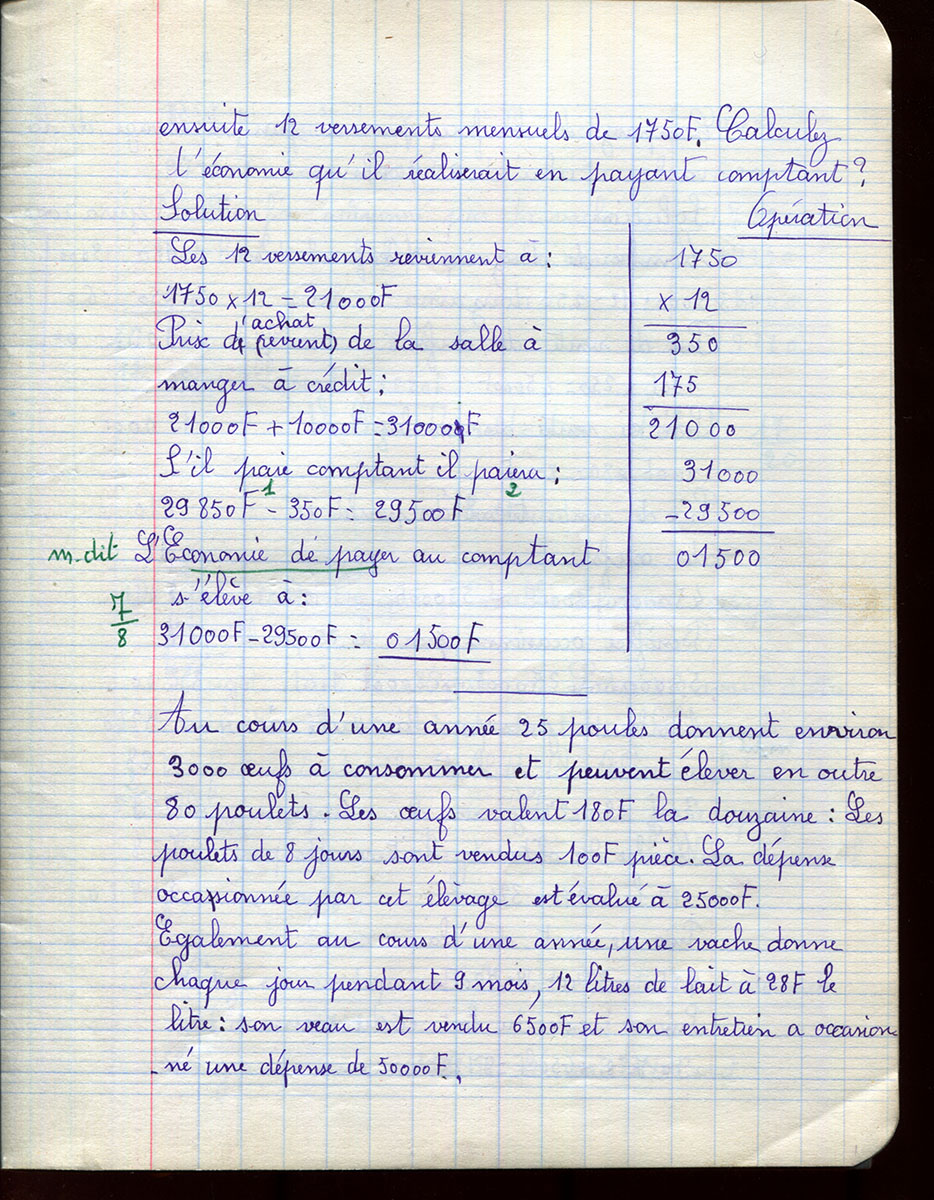 ensuite 12 versements mensuels de 1750F. Calculez
l'économie qu'il réaliserait en payant comptant ?
Solution
Opération
Les 12 versements reviennent à :
1750 x 12 = 21000F
Prix d'achat (revient) de la salle à
manger à crédit ;
21000F + 10000F = 31000F
S'il paie comptant il paiera ;
1 2
29850F - 350F = 29500F
m. dit L'Economie de payer au comptant
s'élève à :
7/8
31000F - 29500F = 01500F
1750
x 12
350
175
21000
31000
- 29500
01500
Au cours d'une année 25 poules donnent environ
3000 œufs à consommer et peuvent élever en outre
80 poulets. Les œufs valent 180F la douzaine : Les
poulets de 8 jours sont vendus 100F pièce. La dépense
occasionnée par cet élèvage est évalué à 25000F.
Egalement au cours d'une année, une vache donne
chaque jour pendant 9 mois, 12 litres de lait à 28F le
litre : son veau est vendu 6500F et son entretien a occasion
-né une dépense de 50000F.